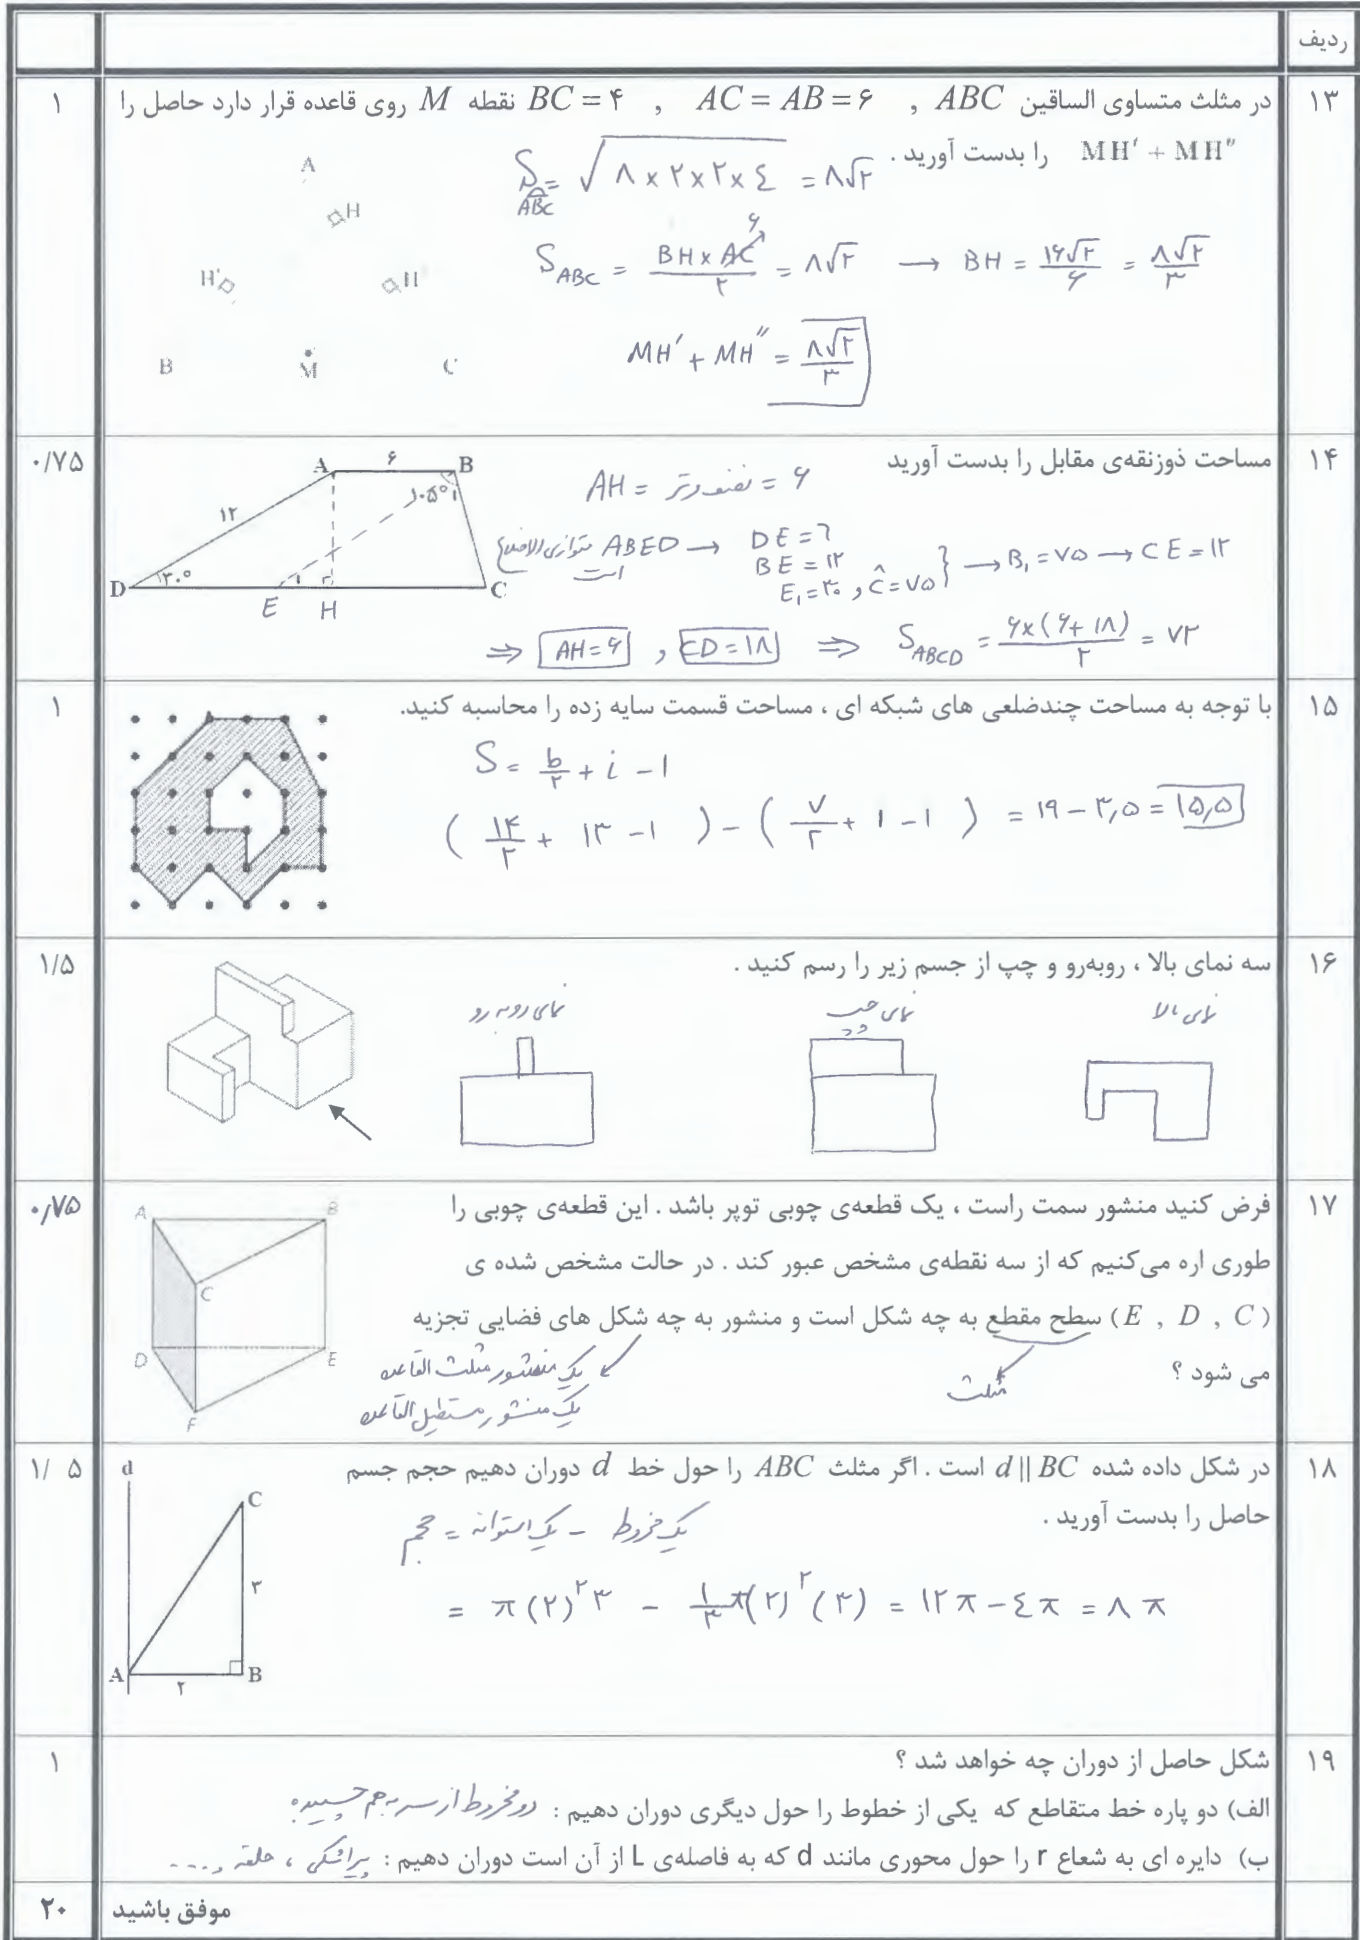 ردیف
۱۳
در مثلث متساوی الساقین ABC , AC = AB = ۶ , BC = ۴ نقطه M روی قاعده قرار دارد حاصل را
MH′ + MH″ را بدست آورید .
۱
A
H
H′
H
B
M
C
S ABC = √۸ × ۲ × ۲ × ٤ = ۸√۲
S ABC = BH × AC / ۲ = ۸√۲ → BH = ۱۶√۲ / ۶ = ۸√۲ / ۳
۶
MH′ + MH″ = ۸√۲ / ۳
۱۴
مساحت ذوزنقه‌ی مقابل را بدست آورید
۰/۷۵
A ۶ B
۱۲
۱۰۵° ۱
D ۳۰° ۱ C
E H
AH = نصف وتر = ۶
ABED متوازی الاضلاع است → DE = ۶
BE = ۱۲
E₁ = ۳۰ , Ĉ = ۷۵ } → B₁ = ۷۵ → CE = ۱۲
⇒ AH = ۶ , CD = ۱۸ ⇒ S ABCD = ۶×(۶+۱۸) / ۲ = ۷۲
۱۵
با توجه به مساحت چندضلعی های شبکه ای ، مساحت قسمت سایه زده را محاسبه کنید.
۱
S = b/۲ + i − ۱
( ۱۴/۲ + ۱۳ − ۱ ) − ( ۷/۲ + ۱ − ۱ ) = ۱۹ − ۳٫۵ = ۱۵٫۵
۱۶
سه نمای بالا ، روبه‌رو و چپ از جسم زیر را رسم کنید .
۱/۵
نمای بالا
نمای چپ
نمای روبه رو
۱۷
فرض کنید منشور سمت راست ، یک قطعه‌ی چوبی توپر باشد . این قطعه‌ی چوبی را
طوری اره می‌کنیم که از سه نقطه‌ی مشخص عبور کند . در حالت مشخص شده ی
(E , D , C) سطح مقطع به چه شکل است و منشور به چه شکل های فضایی تجزیه
می شود ؟
۰٫۷۵
A
B
C
D
E
F
مثلث
یک منشور مثلث القاعده
یک منشور مستطیل القاعده
۱۸
در شکل داده شده d || BC است . اگر مثلث ABC را حول خط d دوران دهیم حجم جسم
حاصل را بدست آورید .
۱/ ۵
d
C
۳
A
۲
B
حجم = یک استوانه − یک مخروط
= π(۲)²۳ − ۱/۳ π(۲)²(۳) = ۱۲π − ٤π = ۸π
۱۹
شکل حاصل از دوران چه خواهد شد ؟
۱
الف) دو پاره خط متقاطع که یکی از خطوط را حول دیگری دوران دهیم : دو مخروط از سر به هم چسبیده
ب) دایره ای به شعاع r را حول محوری مانند d که به فاصله‌ی L از آن است دوران دهیم : پیراشکی ، حلقه و....
موفق باشید
۲۰